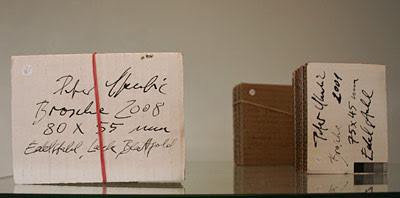 Peter Skubic
Brosche 2008
80 X 55 mm
Edelstahl, Lack, Blattgold
Peter Skubic
Brosche 2001
75 X 45 mm
Edelstahl